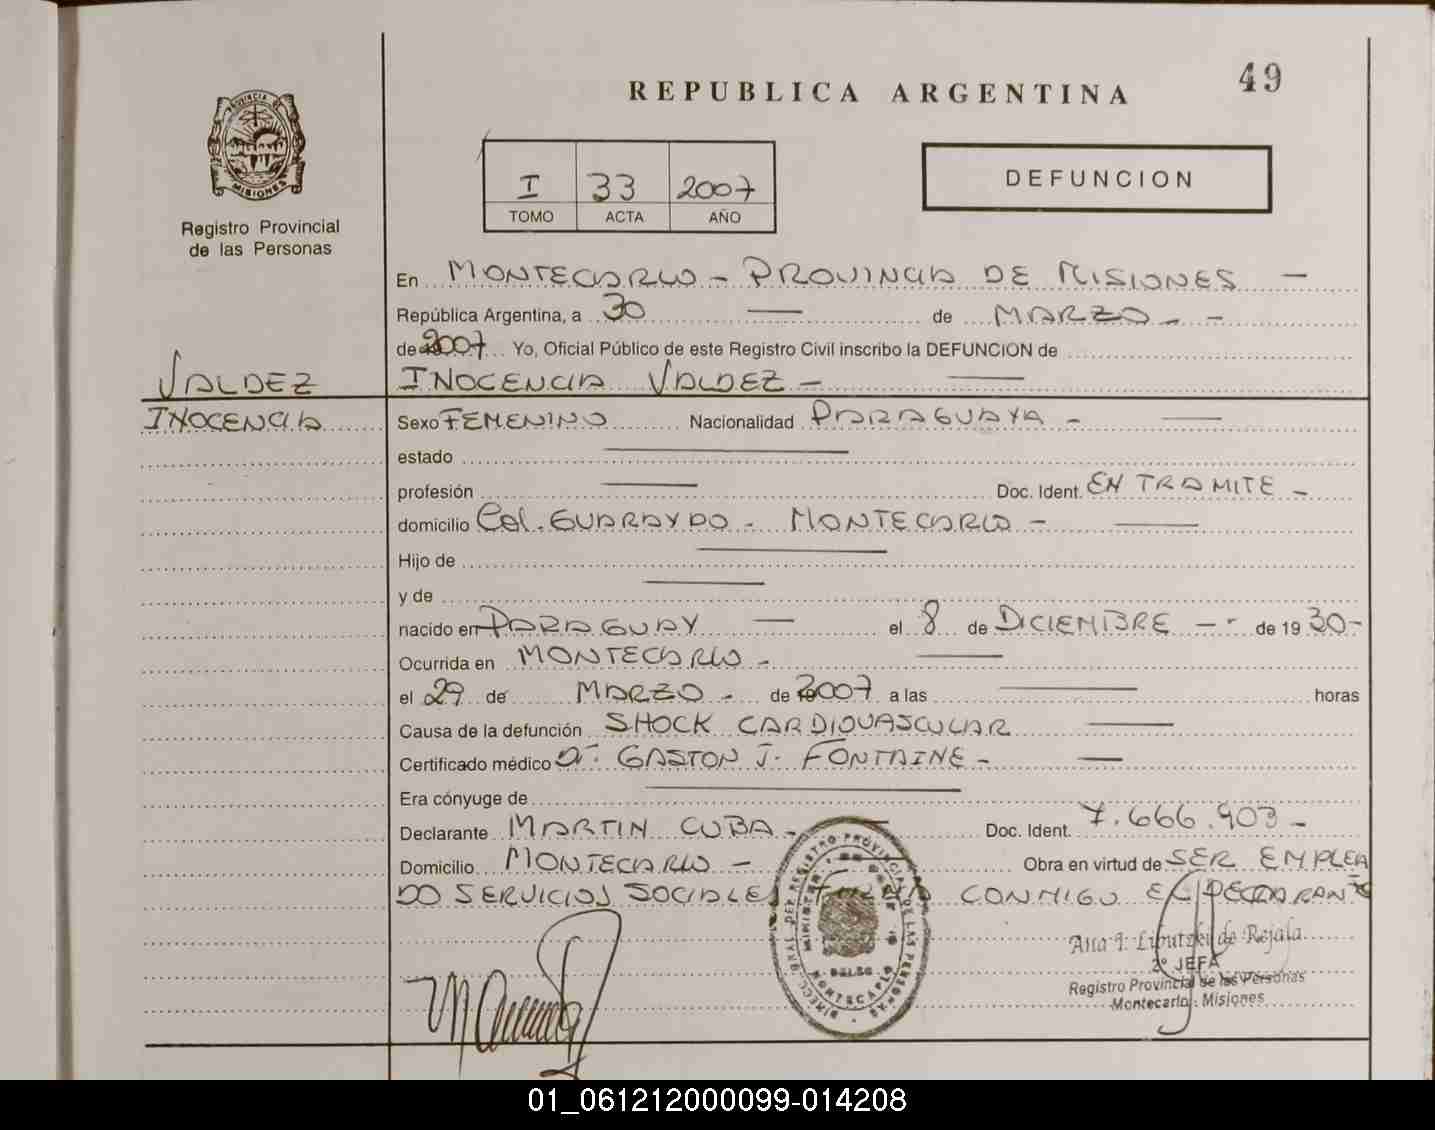 49
REPUBLICA ARGENTINA
PROVINCIA DE
MISIONES
Registro Provincial
de las Personas
I 33 2007
TOMO ACTA AÑO
DEFUNCION
En MONTECARLO - PROVINCIA DE MISIONES -
República Argentina, a 30 — de MARZO - -
de 2007 Yo, Oficial Público de este Registro Civil inscribo la DEFUNCION de
VALDEZ
INOCENCIA
INOCENCIA VALDEZ - —
Sexo FEMENINO Nacionalidad PARAGUAYA - —
estado —
profesión — Doc. Ident. EN TRAMITE -
domicilio Col. GUARAYPO - MONTECARLO - —
Hijo de —
y de —
nacido en PARAGUAY — el 8 de DICIEMBRE - - de 19 30-
Ocurrida en MONTECARLO - —
el 29 de MARZO - de 2007 a las — horas
Causa de la defunción SHOCK CARDIOVASCULAR —
Certificado médico Dr. GASTON J. FONTAINE - —
Era cónyuge de —
Declarante MARTIN CUBA - Doc. Ident. 7.666.903 -
Domicilio MONTECARLO - Obra en virtud de SER EMPLEA
DO SERVICIOS SOCIALES CONMIGO EL DECLARANTE
Ana I. Liputzki de Rejala
2º JEFA
Registro Provincial de las Personas
Montecarlo - Misiones
MONTECARLO
01_061212000099-014208